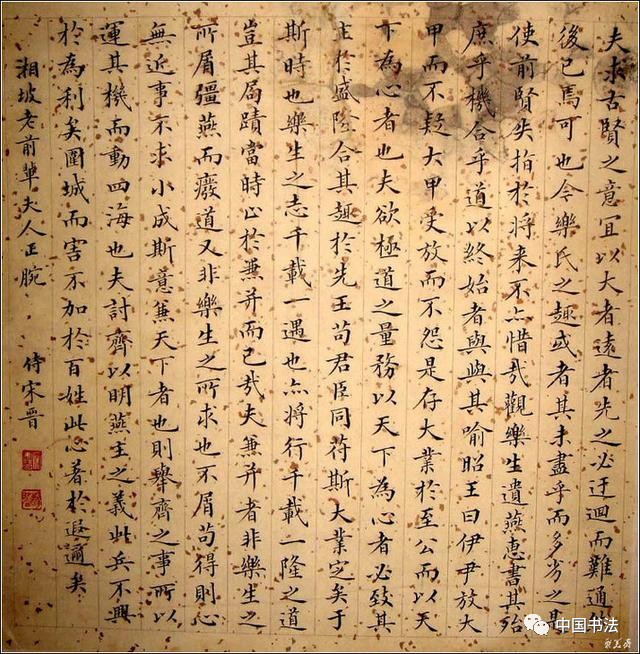 夫求古賢之意宜以大者遠者先之必迂迴而難通
後已焉可也今樂氏之趣或者其未盡乎而多劣之是
使前賢失指於將來不亦惜哉觀樂生遺燕惠書其殆
庶乎機合乎道以終始者與與其喻昭王曰伊尹放大
甲而不疑大甲受放而不怨是存大業於至公而以天
下為心者也夫欲極道之量務以天下為心者必致其
主於盛隆合其趣於先王苟君臣同符斯大業定矣于
斯時也樂生之志千載一遇也亦將行千載一隆之道
豈其局蹟當時止於兼并而已哉夫兼并者非樂生之
所屑彊燕而廢道又非樂生之所求也不屑苟得則心
無近事不求小成斯意兼天下者也則舉齊之事所以
運其機而動四海也夫討齊以明燕主之義此兵不興
於為利矣圍城而害不加於百姓此心著於遐邇矣
湘坡老前輩夫人正腕
侍宋晉
中国书法